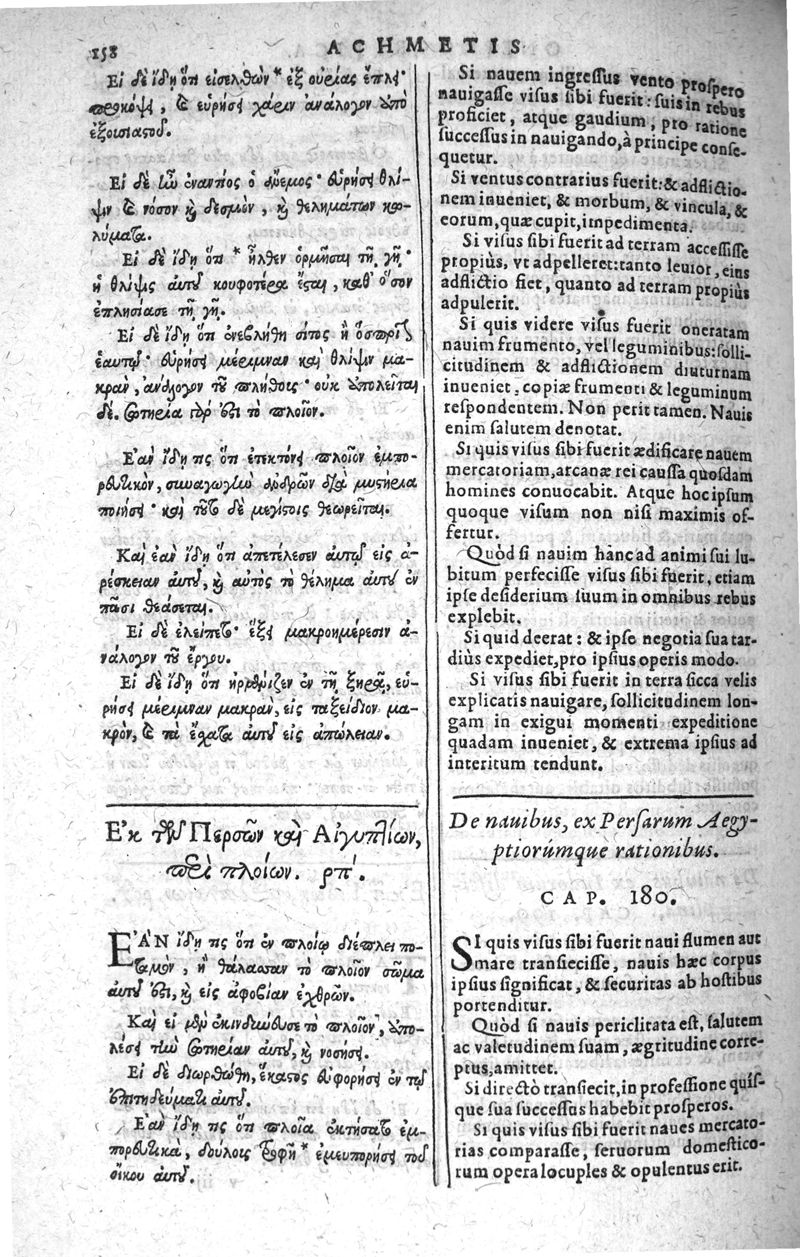 158
ACHMETIS
Εἰ δὲ ἴδη ὅτι εἰσελθὼν * ἐξ οὐρίας ἔπλει·
προκόψει, καὶ εὑρήσει χάριν ἀνάλογον ὑπὸ
ἐξουσιαστοῦ.
Εἰ δὲ ἦν ἐναντίος ὁ ἄνεμος· εὑρήσει θλί-
ψιν καὶ νόσον καὶ δεσμὸν, καὶ θελημάτων κω-
λύματα.
Εἰ δὲ ἴδη ὅτι * ἦλθεν ὁρμῆσαι τῇ γῇ·
ἡ θλίψις αὐτοῦ κουφοτέρα ἔσται, καθ' ὅσον
ἐπλησίασε τῇ γῇ.
Εἰ δὲ ἴδη ὅτι ἐνεβλήθη σῖτος ἢ ὄσπριον
ἑαυτῷ· εὑρήσει μέριμναν καὶ θλίψιν μα-
κρὰν, ἀνάλογον τοῦ πλήθους· οὐκ ἀπολεῖται
δέ. σωτηρία γάρ ἐστι τὸ πλοῖον.
Ἐὰν ἴδη τις ὅτι ἐτεκτόνει πλοῖον ἐμπο-
ρευτικὸν, συναγωγὴν ἀνδρῶν διὰ μυστήρια
ποιήσει· καὶ τοῦτο δὲ μεγίστοις θεωρεῖται.
Καὶ ἐὰν ἴδη ὅτι ἀπετέλεσεν αὐτῷ εἰς ἀ-
ρέσκειαν αὐτοῦ, καὶ αὐτὸς τὸ θέλημα αὐτοῦ ἐν
πᾶσι θεάσεται.
Εἰ δὲ ἐλείπετο· ἕξει μακροημέρεσιν ἀ-
νάλογον τοῦ ἔργου.
Εἰ δὲ ἴδη ὅτι ἠρμένιζεν ἐν τῇ ξηρᾷ, εὑ-
ρήσει μέριμναν μακρὰν, εἰς ταξείδιον μα-
κρὸν, καὶ τὰ ἔσχατα αὐτοῦ εἰς ἀπώλειαν.
Ἐκ τῶν Περσῶν καὶ Αἰγυπτίων,
περὶ πλοίων. ρπʹ.
ΕΑΝ ἴδη τις ὅτι ἐν πλοίῳ διέπλει πο-
ταμὸν, ἢ θάλασσαν τὸ πλοῖον σῶμα
αὐτοῦ ἐστι, καὶ εἰς ἀφοβίαν ἐχθρῶν.
Καὶ εἰ μὲν ἐκινδύνευσε τὸ πλοῖον, ἀπο-
λέσει τὴν σωτηρίαν αὐτοῦ, καὶ νοσήσει.
Εἰ δὲ διωρθώθη, ἕκαστος εὐφορήσει ἐν τῷ
ἐπιτηδεύματι αὐτοῦ.
Ἐὰν ἴδη τις ὅτι πλοῖα ἐκτήσατο ἐμ-
πορευτικὰ, δούλοις * ἐμευπορήσει τοῦ
οἴκου αὐτοῦ.
Si nauem ingressus vento prospero
nauigasse visus sibi fuerit: suis in rebus
proficiet, atque gaudium, pro ratione
successus in nauigando, à principe conse-
quetur.
Si ventus contrarius fuerit: & adflictio-
nem inueniet, & morbum, & vincula, &
eorum, quæ cupit, impedimenta.
Si visus sibi fuerit ad terram accessisse
propiùs, vt adpelleret: tanto leuior, eius
adflictio fiet, quanto ad terram propiùs
adpulerit.
Si quis videre visus fuerit oneratam
nauim frumento, vel leguminibus: solli-
citudinem & adflictionem diuturnam
inueniet, copiæ frumenti & leguminum
respondentem. Non perit tamen. Nauis
enim salutem denotat.
Si quis visus sibi fuerit ædificare nauem
mercatoriam, arcanæ rei caussa quosdam
homines conuocabit. Atque hoc ipsum
quoque visum non nisi maximis of-
fertur.
Quòd si nauim hanc ad animi sui lu-
bitum perfecisse visus sibi fuerit, etiam
ipse desiderium suum in omnibus rebus
explebit.
Si quid deerat: & ipse negotia sua tar-
diùs expediet, pro ipsius operis modo.
Si visus sibi fuerit in terra sicca velis
explicatis nauigare, sollicitudinem lon-
gam in exigui momenti expeditione
quadam inueniet, & extrema ipsius ad
interitum tendunt.
De nauibus, ex Persarum Aegy-
ptiorúmque rationibus.
CAP. 180.
SI quis visus sibi fuerit naui flumen aut
mare transiecisse, nauis hæc corpus
ipsius significat, & securitas ab hostibus
portenditur.
Quòd si nauis periclitata est, salutem
ac valetudinem suam, ægritudine corre-
ptus, amittet.
Si directò transiecit, in professione quis-
que sua successus habebit prosperos.
Si quis visus sibi fuerit naues mercato-
rias comparasse, seruorum domestico-
rum opera locuples & opulentus erit.